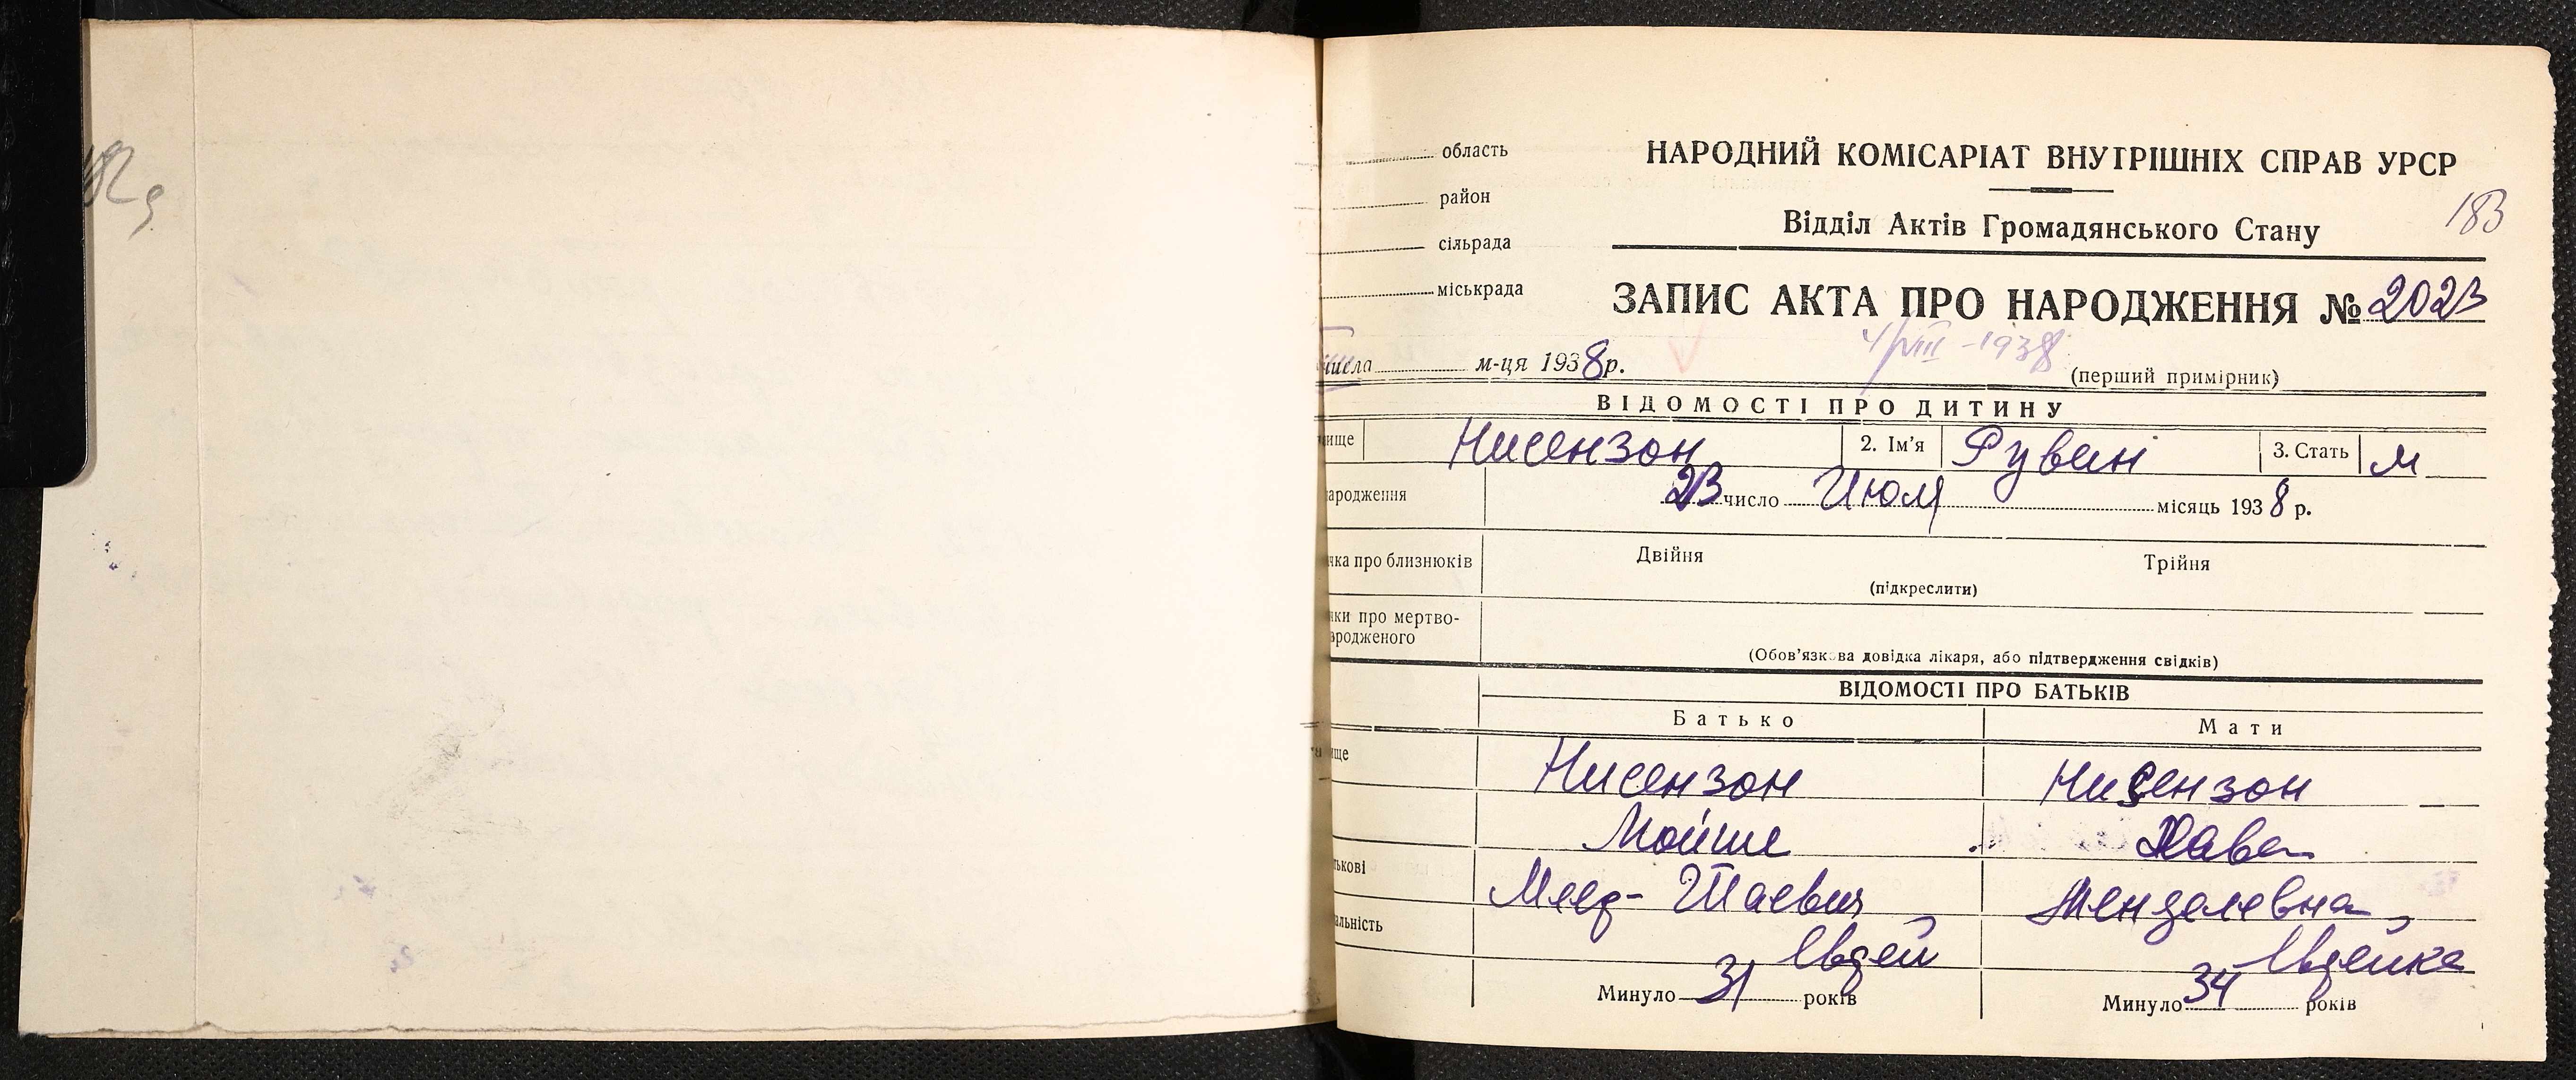 область
район
сільрада
міськрада
НАРОДНИЙ КОМІСАРІАТ ВНУТРІШНІХ СПРАВ УРСР
183
Відділ Актів Громадянського Стану
ЗАПИС АКТА ПРО НАРОДЖЕННЯ № 2023
4/VIII -1938
числа м-ця 1938 р.
(перший примірник)
ВІДОМОСТІ ПРО ДИТИНУ
ище Нисензон 2. Ім'я Рувин 3. Стать м
ародження 23 число Июль місяць 1938 р.
чка про близнюків Двійня Трійня
(підкреслити)
ки про мертво-
ародженого
(Обов'язкова довідка лікаря, або підтвердження свідків)
ВІДОМОСТІ ПРО БАТЬКІВ
Батько Мати
ище Нисензон Нисензон
Мойше Хава
ькові Менделевна
альність Еврей Еврейка
Минуло 31 років Минуло 34 років